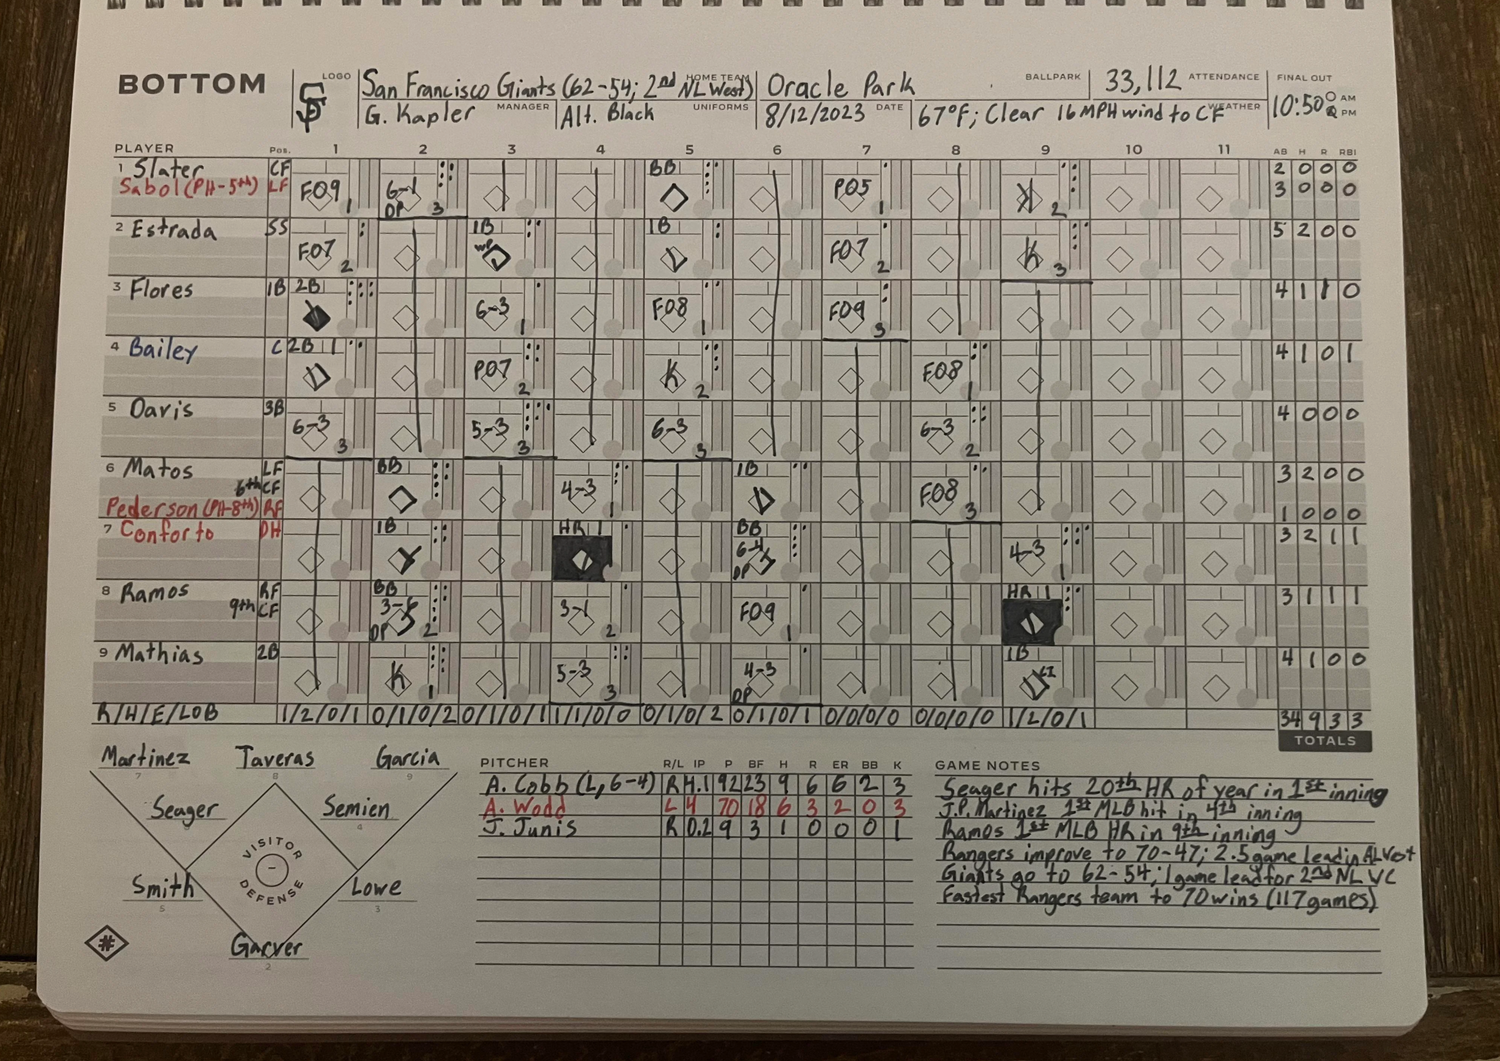 BOTTOM SF LOGO San Francisco Giants (62-54; 2nd NL West) HOME TEAM Oracle Park BALLPARK 33,112 ATTENDANCE FINAL OUT
G. Kapler MANAGER Alt. Black UNIFORMS 8/12/2023 DATE 67°F; Clear 16 MPH wind to CF WEATHER 10:50 AM PM
PLAYER Pos. 1 2 3 4 5 6 7 8 9 10 11 AB H R RBI
1 Slater CF BB 2 0 0 0
Sabol (PH-5th) LF FO9 1 6-1 DP 3 PO5 1 K 2 3 0 0 0
2 Estrada SS 1B 1B 5 2 0 0
FO7 2 WP FO7 2 K 3
3 Flores 1B 2B 4 1 1 0
6-3 1 FO8 1 FO9 3
4 Bailey C 2B 1 4 1 0 1
PO7 2 K 2 FO8 1
5 Davis 3B 4 0 0 0
6-3 3 5-3 3 6-3 3 6-3 2
6 Matos LF BB 1B 3 2 0 0
6th CF 4-3 1 FO8 3
Pederson (PH-8th) RF 1 0 0 0
7 Conforto DH 1B HR 1 BB 3 2 1 1
6-4 DP 4-3 1
8 Ramos RF BB HR 1 3 1 1 1
9th CF DP 2 3-1 2 FO9 1
9 Mathias 2B 1B 4 1 0 0
K 1 5-3 3 4-3 DP
R/H/E/LOB 1/2/0/1 0/1/0/2 0/1/0/1 1/1/0/0 0/1/0/2 0/1/0/1 0/0/0/0 0/0/0/0 1/2/0/1 34 9 3 3
TOTALS
Martinez 7 Taveras 8 Garcia 9
Seager Semien 4
VISITOR DEFENSE
Smith 5 Lowe 3
Garver 2
#
PITCHER R/L IP P BF H R ER BB K
A. Cobb (L, 6-4) R 4.1 92 23 9 6 6 2 3
A. Wodd L 4 70 18 6 3 2 0 3
J. Junis R 0.2 9 3 1 0 0 0 1
GAME NOTES
Seager hits 20th HR of year in 1st inning
J.P. Martinez 1st MLB hit in 4th inning
Ramos 1st MLB HR in 9th inning
Rangers improve to 70-47; 2.5 game lead in AL West
Giants go to 62-54; 1 game lead for 2nd NL WC
Fastest Rangers team to 70 wins (117 games)